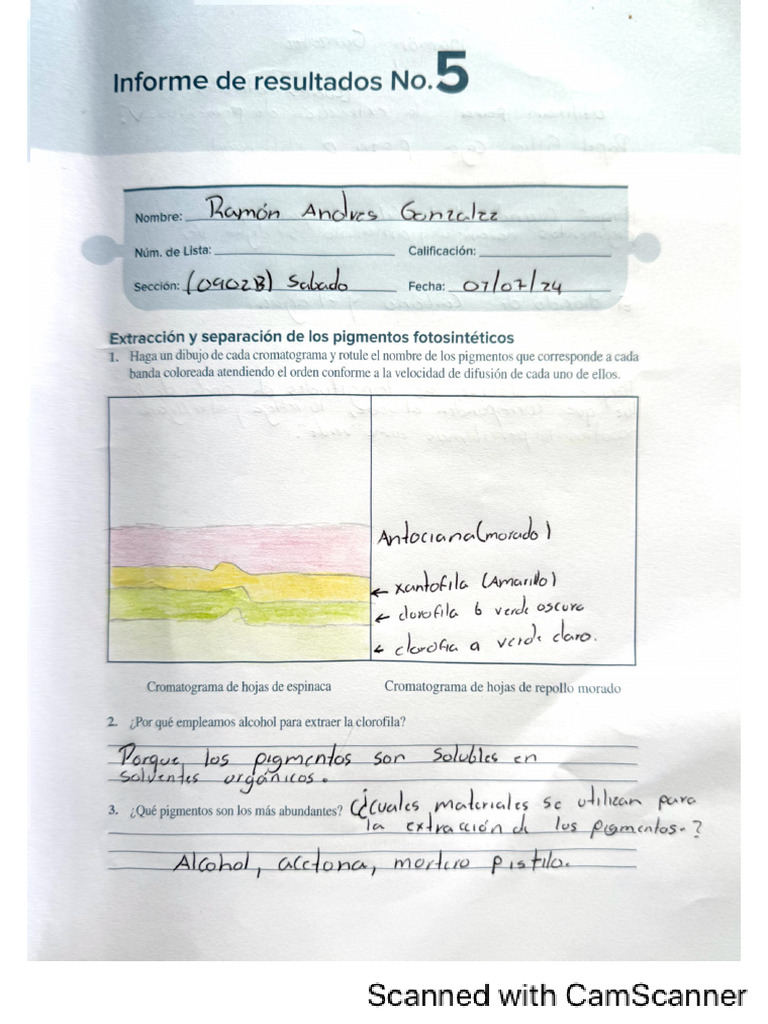 Informe de resultados No.5
Nombre: Ramón Andres Gonzalez
Núm. de Lista: Calificación:
Sección: (0902B) Sabado Fecha: 07/07/24
Extracción y separación de los pigmentos fotosintéticos
1. Haga un dibujo de cada cromatograma y rotule el nombre de los pigmentos que corresponde a cada
banda coloreada atendiendo el orden conforme a la velocidad de difusión de cada uno de ellos.
Antociana (morado)
← xantofila (Amarillo)
← clorofila b verde oscuro
← clorofia a verde claro.
Cromatograma de hojas de espinaca Cromatograma de hojas de repollo morado
2. ¿Por qué empleamos alcohol para extraer la clorofila?
Porque, los pigmentos son solubles en
solventes orgánicos.
3. ¿Qué pigmentos son los más abundantes? ¿cuales materiales se utilizan para
la extracción de los pigmentos.?
Alcohol, acetona, mortero pistilo.
Scanned with CamScanner